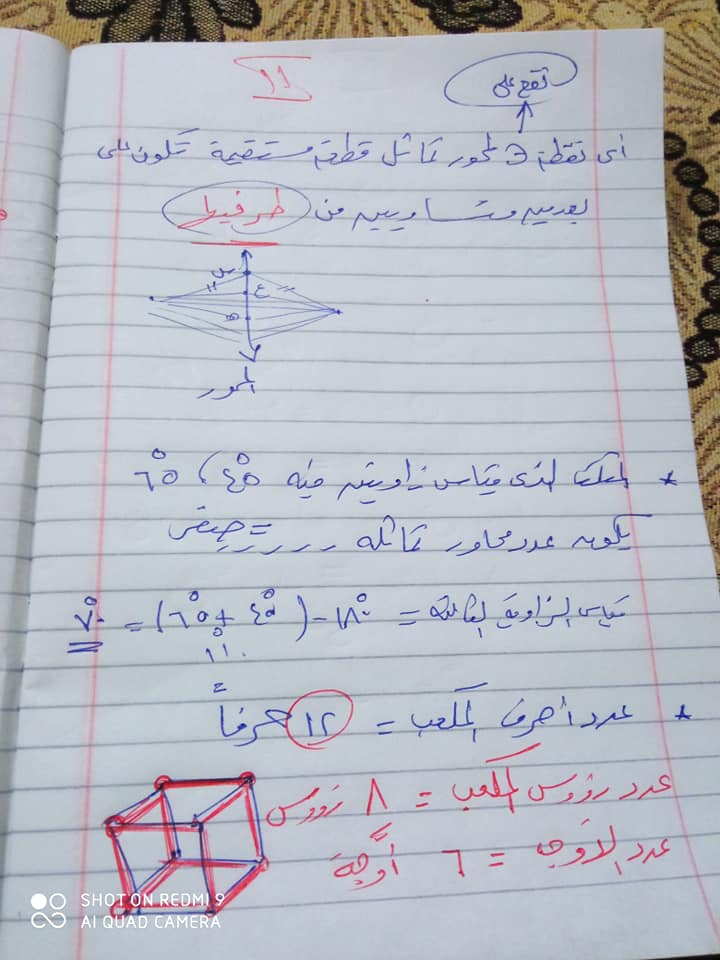 ١١
تقع على
أى نقطة ∋ لمحور تماثل قطعة مستقيمة تكون على
بعدين متساويين من طرفيها
س
ع
المحور
* المثلث الذى قياس زاويتين فيه ٥٠°، ٦٠°
يكون عدد محاور تماثله ----- = صفر
قياس الزاوية الثالثة = ١٨٠° - (٥٠° + ٦٠°) = ٧٠°
١١٠°
* عدد أحرف المكعب = ١٢ حرفاً
عدد رؤوس المكعب = ٨ رؤوس
عدد الأوجه = ٦ أوجه
SHOT ON REDMI 9
AI QUAD CAMERA